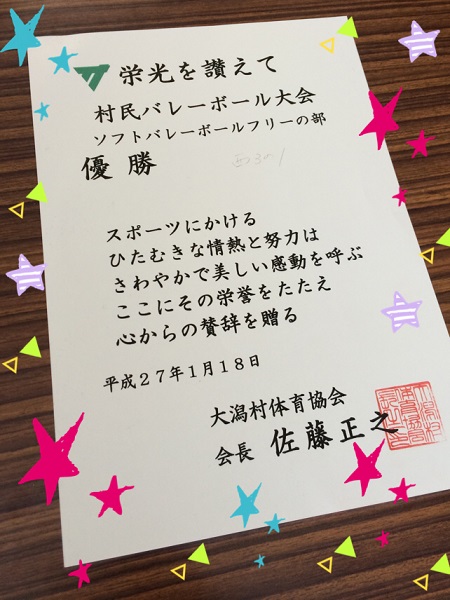 栄光を讃えて
村民バレーボール大会
ソフトバレーボールフリーの部
優勝
スポーツにかける
ひたむきな情熱と努力は
さわやかで美しい感動を呼ぶ
ここにその栄誉をたたえ
心からの賛辞を贈る
平成27年1月18日
大潟村体育協会
会長 佐藤正之